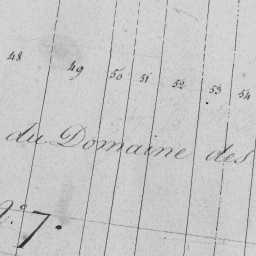 48 49 50 51 52 53 54
du Domaine des
N.º 7.